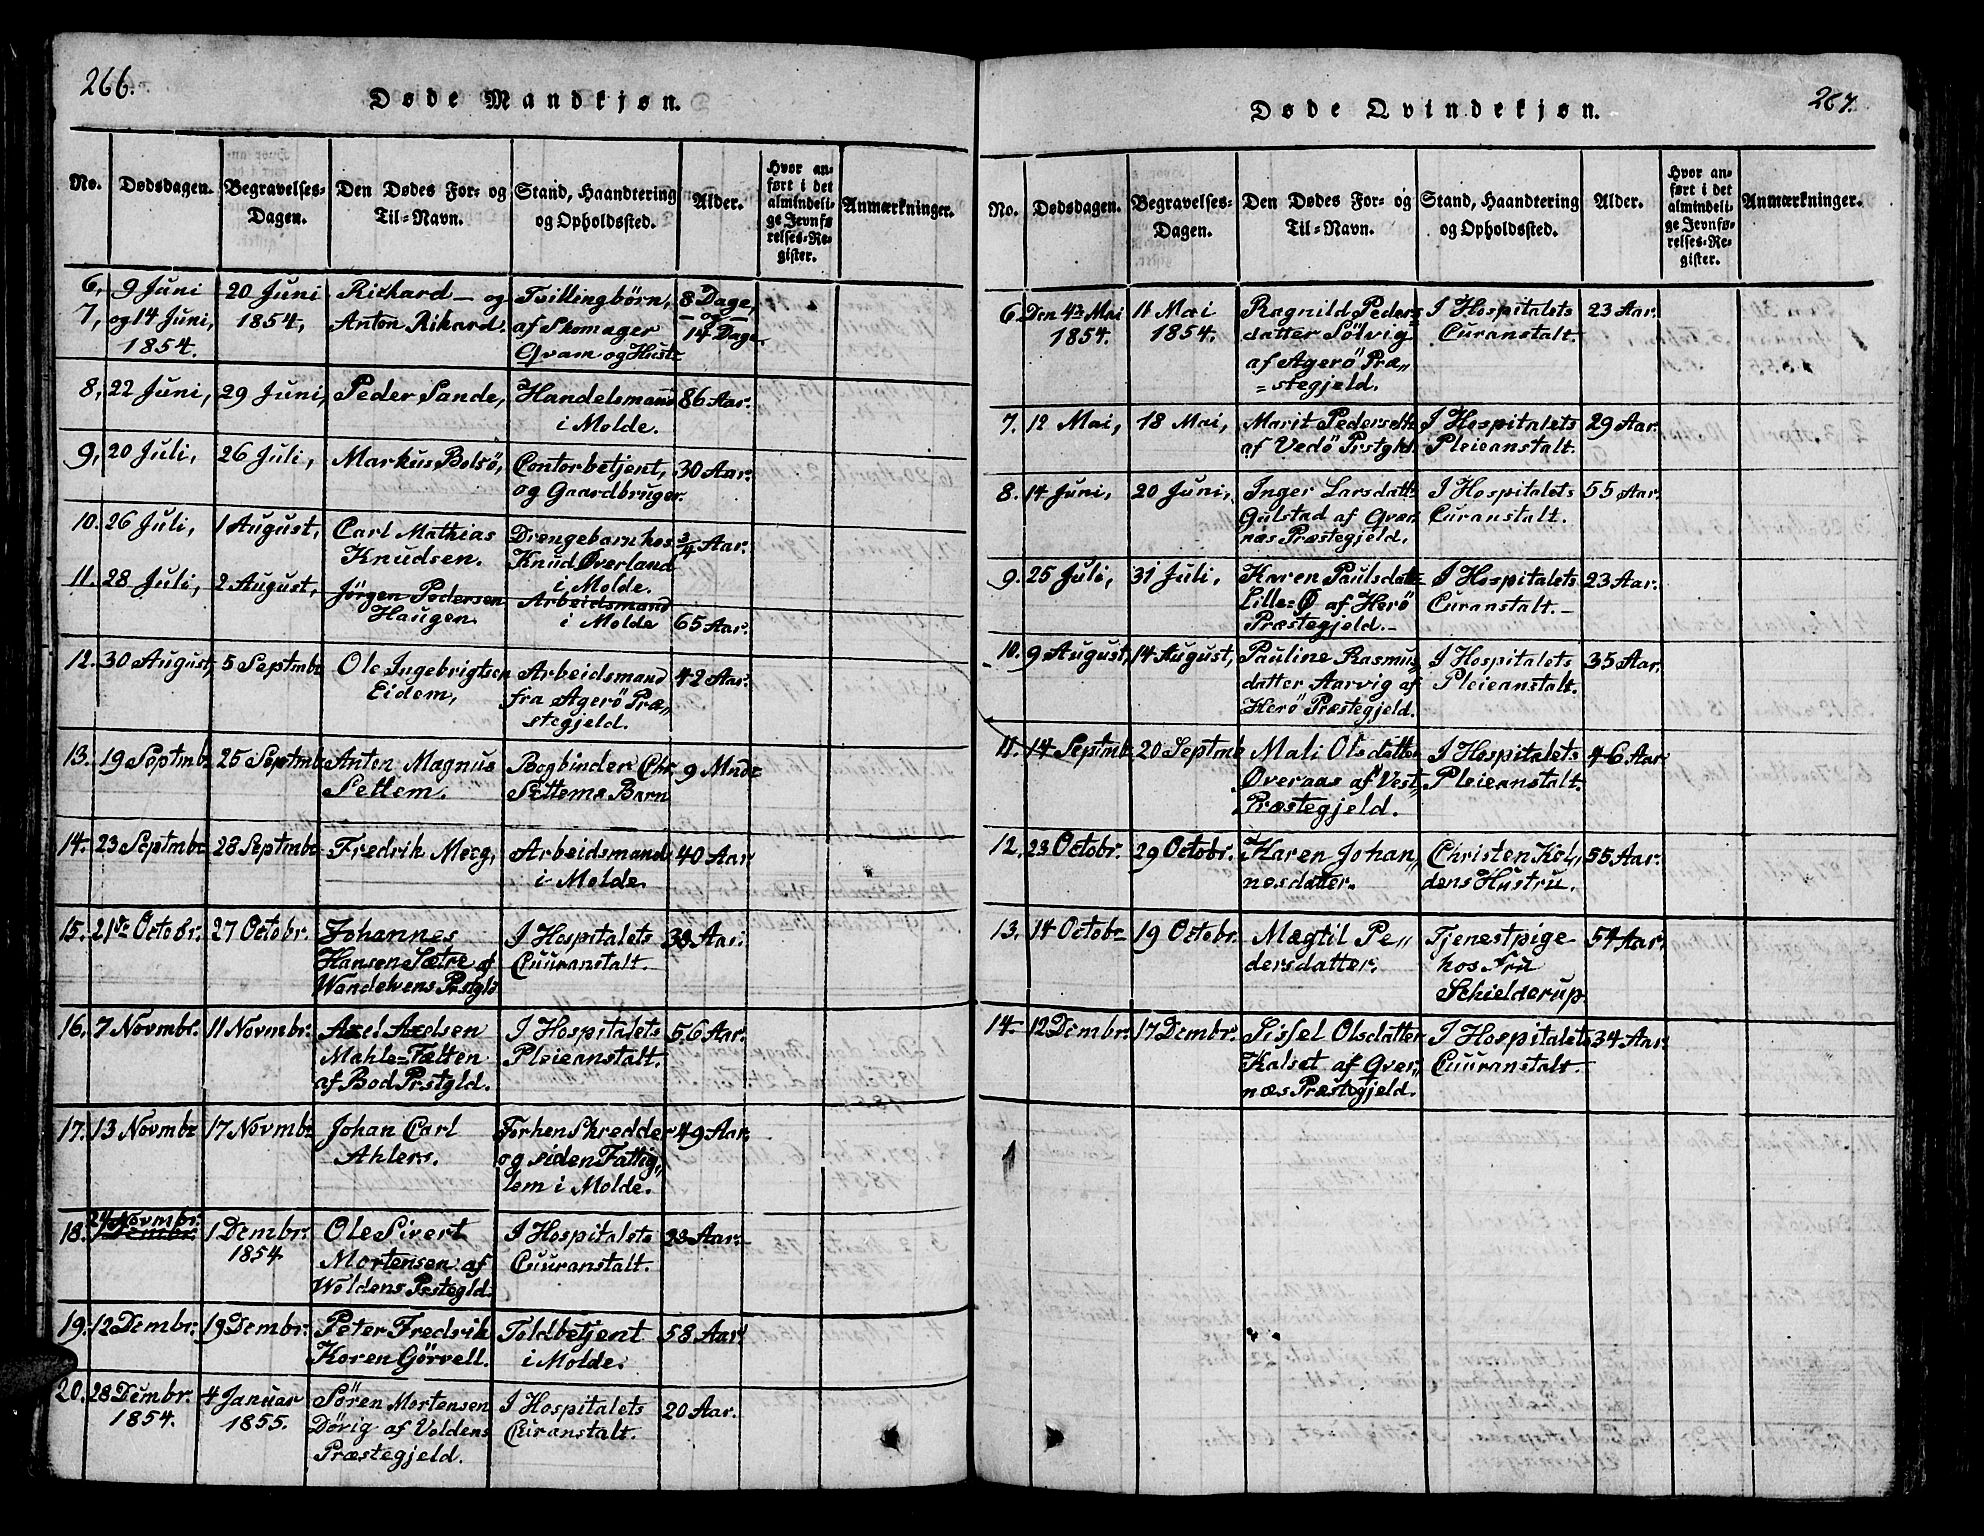 266.
Døde Mandkjøn.
No. Dødsdagen. Begravelses-Dagen. Den Dødes For- og Til-Navn. Stand, Haandtering og Opholdssted. Alder. Hvor anført i det almindelige Jevnførelses-Register. Anmærkninger.
6, 9 Juni 20 Juni Richard — og Tvillingbørn, 8 Dage,
7, og 14 Juni, 1854, Anton Rikard. af Skomager — og —
1854. Qvam og Hustr. 14 Dage.
8, 22 Juni, 29 Juni, Peder Sande, Handelsmand 86 Aar.
i Molde.
9, 20 Juli, 26 Juli, Markus Bolsö, Contorbetjent, 30 Aar.
og Gaardbruger.
10. 26 Juli, 1 August, Carl Mathias Drengebarn hos 3/4 Aar.
Knudsen. Knud Øverland
i Molde.
11. 28 Juli, 2 August, Jørgen Pedersen Arbeidsmand
Haugen. i Molde 65 Aar.
12. 30 August, 5 Septmbr Ole Ingebrigtsen Arbeidsmand 42 Aar.
Eidem, fra Agerö Præ„
stegjeld.
13. 19 Septmbr 25 Septmbr Anten Magnus Bogbinder Chr. 9 Mndr
Settem. Settems Barn
14. 23 Septmbr 28 Septmbr Fredrik Moeg, Arbeidsmand 40 Aar
i Molde.
15. 21de Octobr. 27 Octobr. Johannes I Hospitalets Aar.
Hansen Sætre af Cuuranstalt.
Prstgld
16. 7 Novmbr. 11 Novmbr. Axel Axelsen I Hospitalets 56 Aar.
Mahle=Fælten Pleieanstalt.
af Bod Prstgld.
17. 13 Novmbr 17 Novmbr Johan Carl Forhen Skredder 49 Aar.
Ahlers. og siden Fattig„
lem i Molde.
24 Novmbr.
18. 1 Dembr. 1 Dembr. Ole Sivert I Hospitalets Aar.
1854 Mortensen af Cuuranstalt.
Woldens Prstegld.
19. 12 Dembr. 19 Dembr. Peter Fredrik Toldbetjent 58 Aar
Koren Görvell. i Molde.
20. 28 Dembr. 4 Januar Søren Mortensen I Hospitalets 20 Aar.
1854. 1855. Dörig af Voldens Curanstalt.
Præstegjeld.
267.
Døde Qvindekjøn.
No. Dødsdagen. Begravelses-Dagen. Den Dødes For- og Til-Navn. Stand, Haandtering og Opholdssted. Alder. Hvor anført i det almindelige Jevnførelses-Register. Anmærkninger.
6. Den 4de Mai 11 Mai Ragnild Peders= I Hospitalets 23 Aar.
1854. 1854. datter Sölvig Curanstalt.
af Agerö Præ„
=stegjeld.
7. 12 Mai, 18 Mai, Marit Pedersdtr I Hospitalets 29 Aar.
af Vedö Prstgld. Pleieanstalt.
8. 14 Juni, 20 Juni, Inger Larsdattr I Hospitalets 55 Aar.
Gulstad af Qver Curanstalt.
næs Præstegjeld.
9. 25 Juli, 31 Juli, Karen Paulsdatt= I Hospitalets 23 Aar.
Lille=Ø af Herö Curanstalt.—
Præstegjeld.—
10. 9 August, 14 August, Pauline Rasmus I Hospitalets 35 Aar.
datter Aarvig af Pleieanstalt.
Herö Præstegjeld.
11. 14 Septmbr. 20 Septmbr Mali Olsdatter I Hospitalets 46 Aar
Øveraas af Vest„ Pleieanstalt.
Præstegjeld.
12. 23 Octobr. 29 Octobr. Karen Johan„ Christen Kol„ 55 Aar.
nesdatter. dens Hustru.
13. 14 Octobr 19 Octobr. Mægtil Pe„ Tjenestpige 54 Aar.
dersdatter. hos Fru
Schielderup.
14. 12 Dembr. 17 Dembr. Sissel Olsdatter I Hospitalets 34 Aar.
Kalset af Qver„ Cuuranstalt.
næs Præstegjeld.